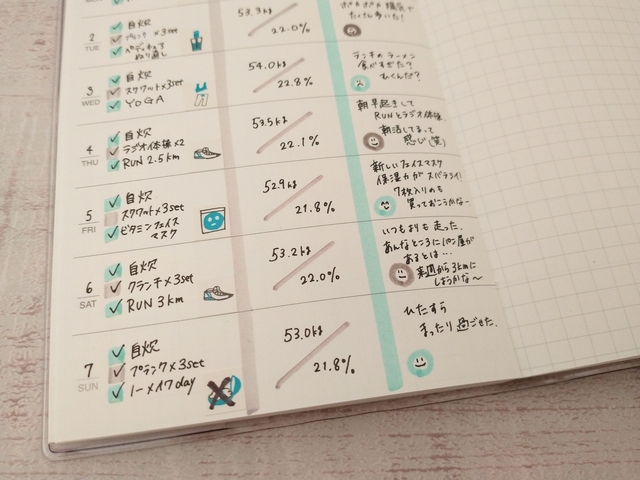 2
TUE
自炊
プランク×3set
ペディキュア
ぬり直し
53.3kg
22.0%
たくさん歩いた!
3
WED
自炊
スクワット×3set
YOGA
54.0kg
22.8%
ランチのラーメン
食べすぎた?
むくんだ?
4
THU
自炊
ラジオ体操×2
RUN 2.5km
53.5kg
22.1%
朝早起きして
RUNとラジオ体操。
朝活してるって
感じ(笑)
5
FRI
自炊
スクワット×3set
ビタミンフェイス
マスク
52.9kg
21.8%
新しいフェイスマスク
保湿力がスバラシイ!
7枚入りのも
買っておこうかなー
6
SAT
自炊
クランチ×3set
RUN 3km
53.2kg
22.0%
いつもよりも走った。
あんなところにパン屋が
あるとは…
来週から3kmに
しようかな〜
7
SUN
自炊
プランク×3set
ノーメイクday
53.0kg
21.8%
ひたすら
まったり過ごせた。